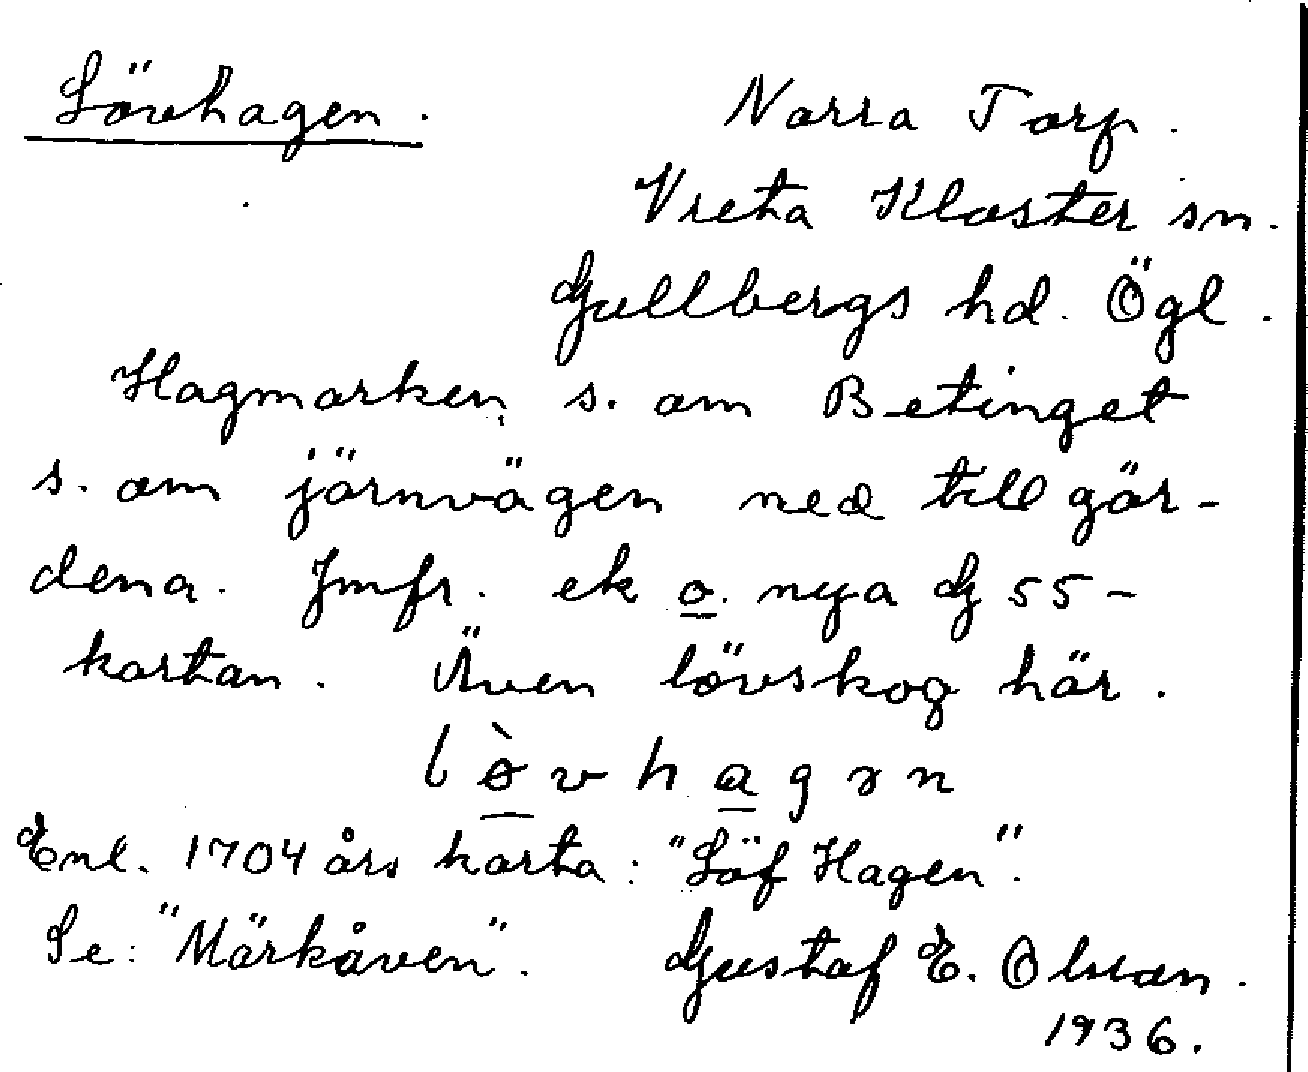 Lövhagen.
Norra Torp.
Vreta Kloster sn.
Gullbergs hd. Ögl.
Hagmarken s. om Betinget
s. om järnvägen ned till gär-
dena. Jmfr. ek o. nya G 55-
kartan. Även lövskog här.
lø̀vhagən
Enl. 1704 års karta: "Löf Hagen".
Se: "Märkåven". Gustaf E. Olsson.
1936.